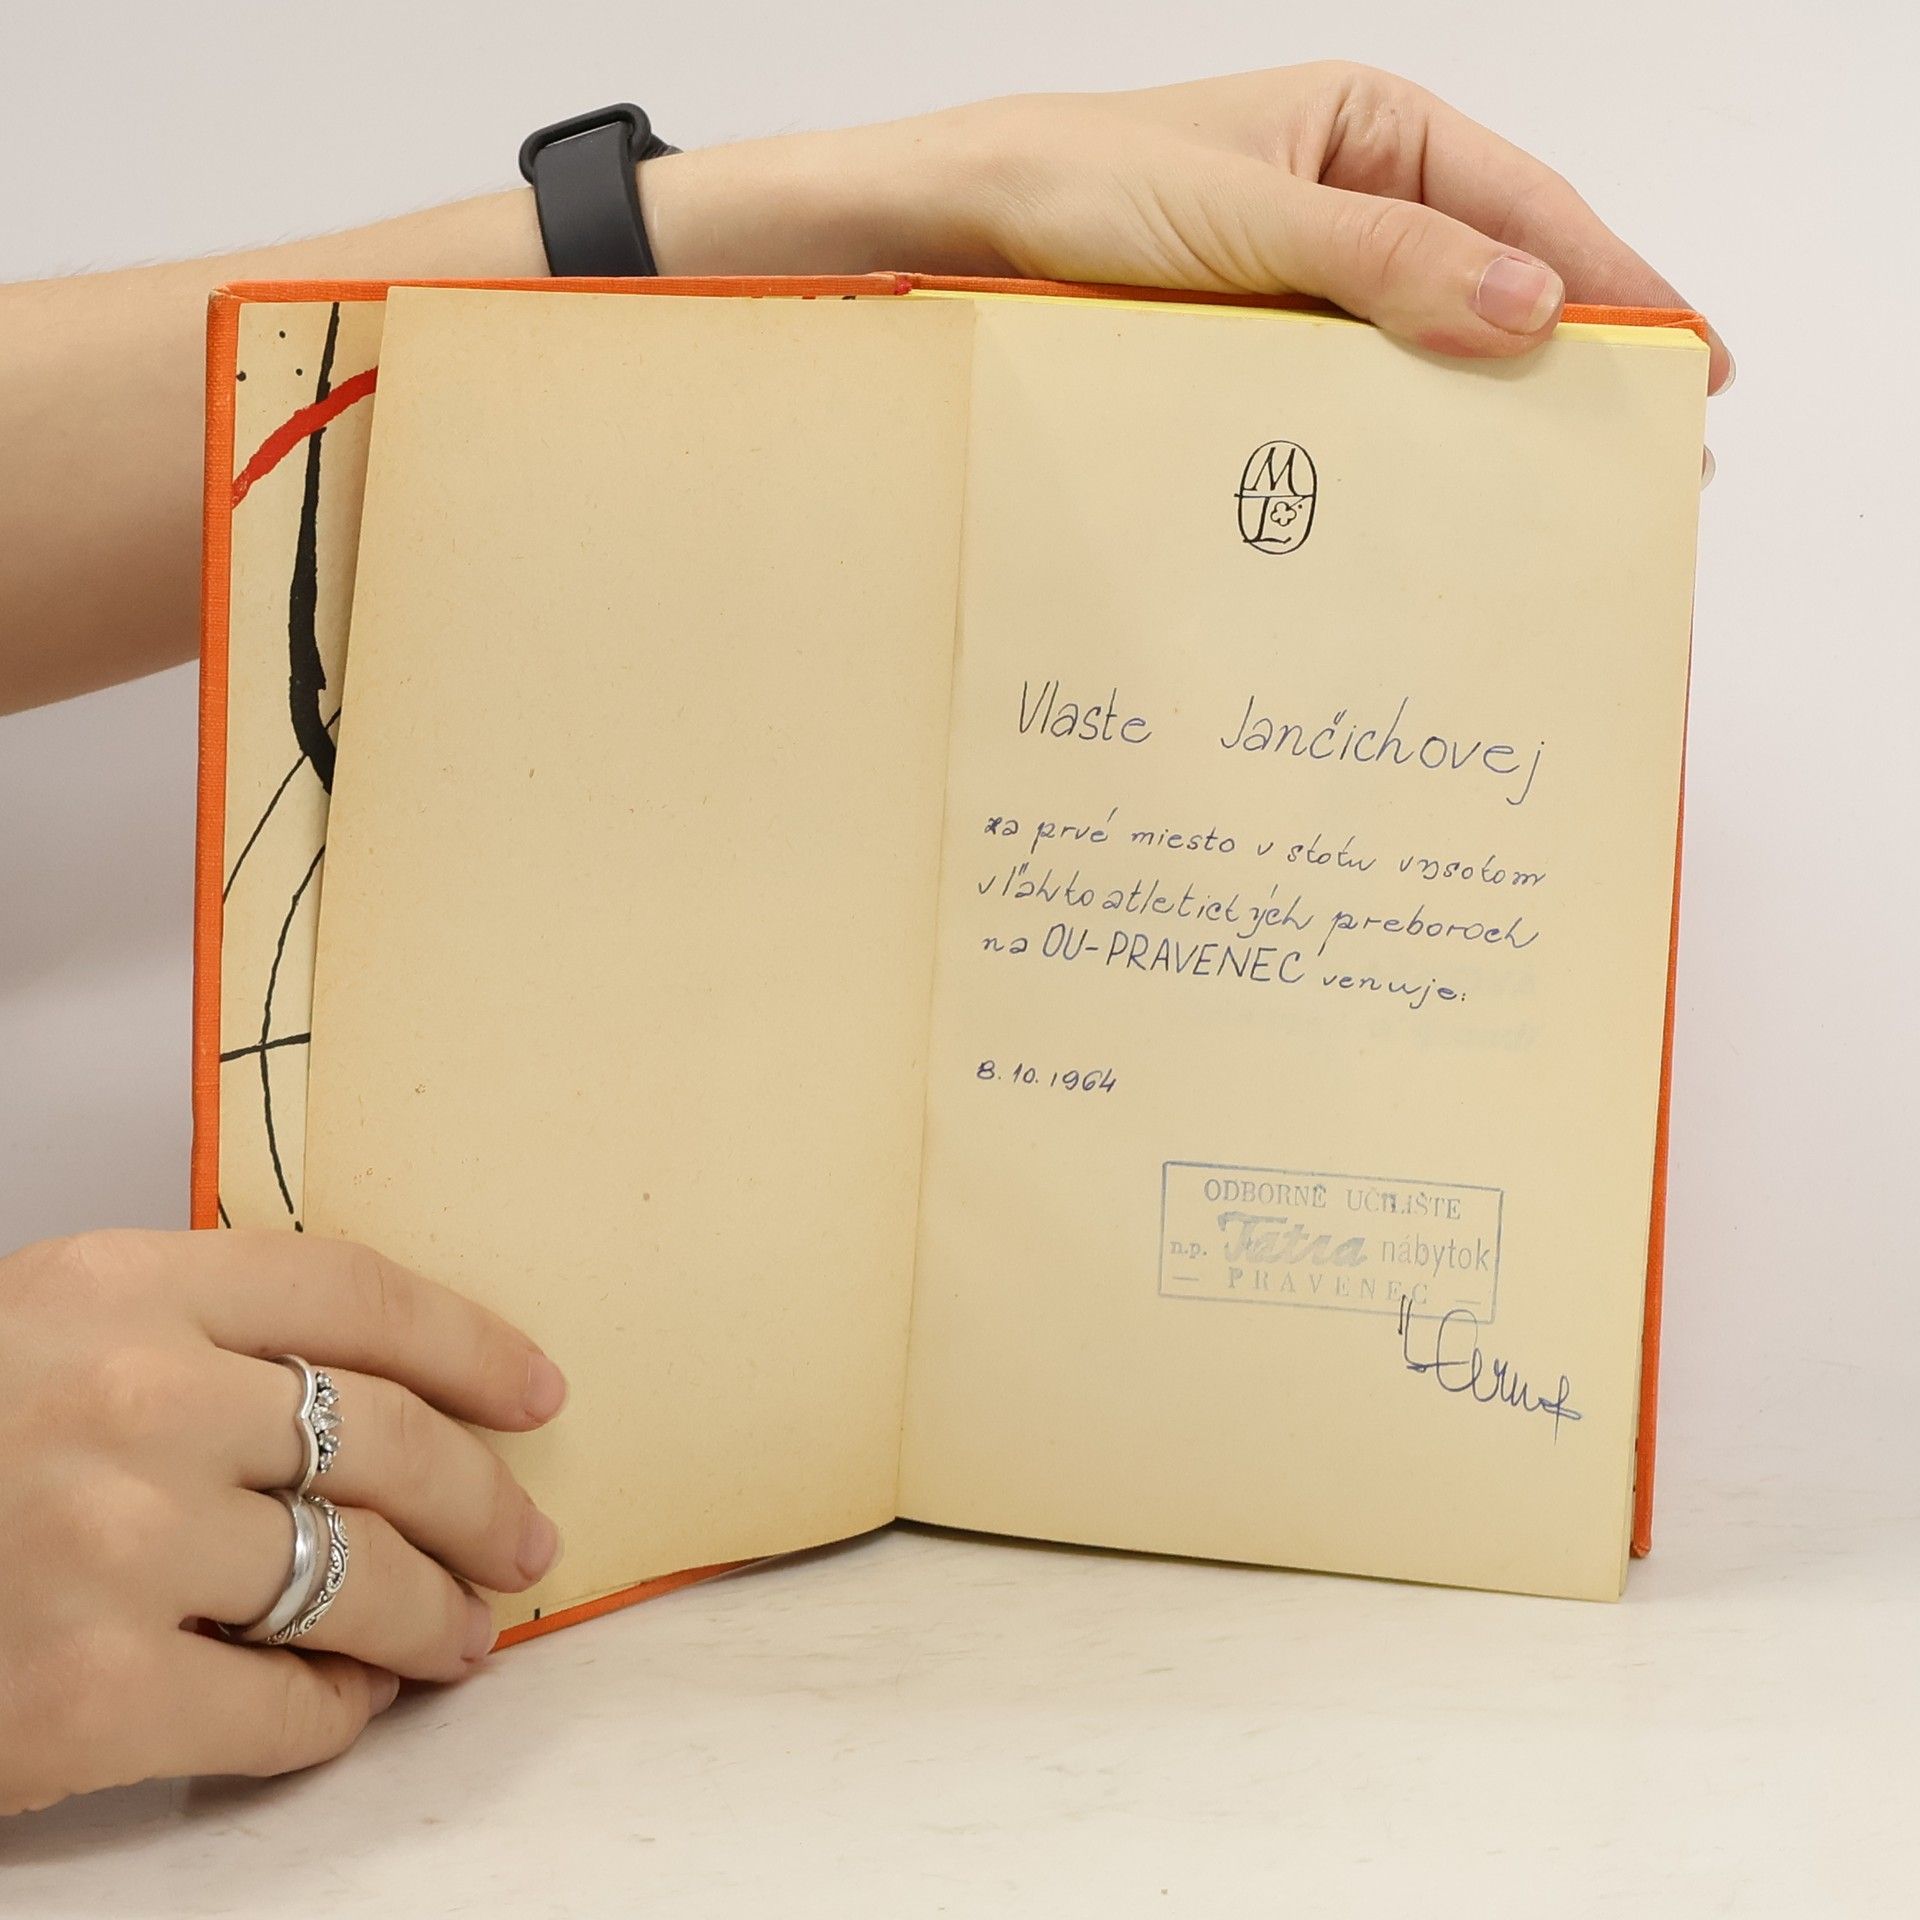 ML
Vlaste Jančichovej
za prvé miesto v skoku vysokom
v ľahkoatletických preboroch
na OU-PRAVENEC venuje:
8. 10. 1964
ODBORNÉ UČILIŠTE
n.p. Tatra nábytok
— PRAVENEC —